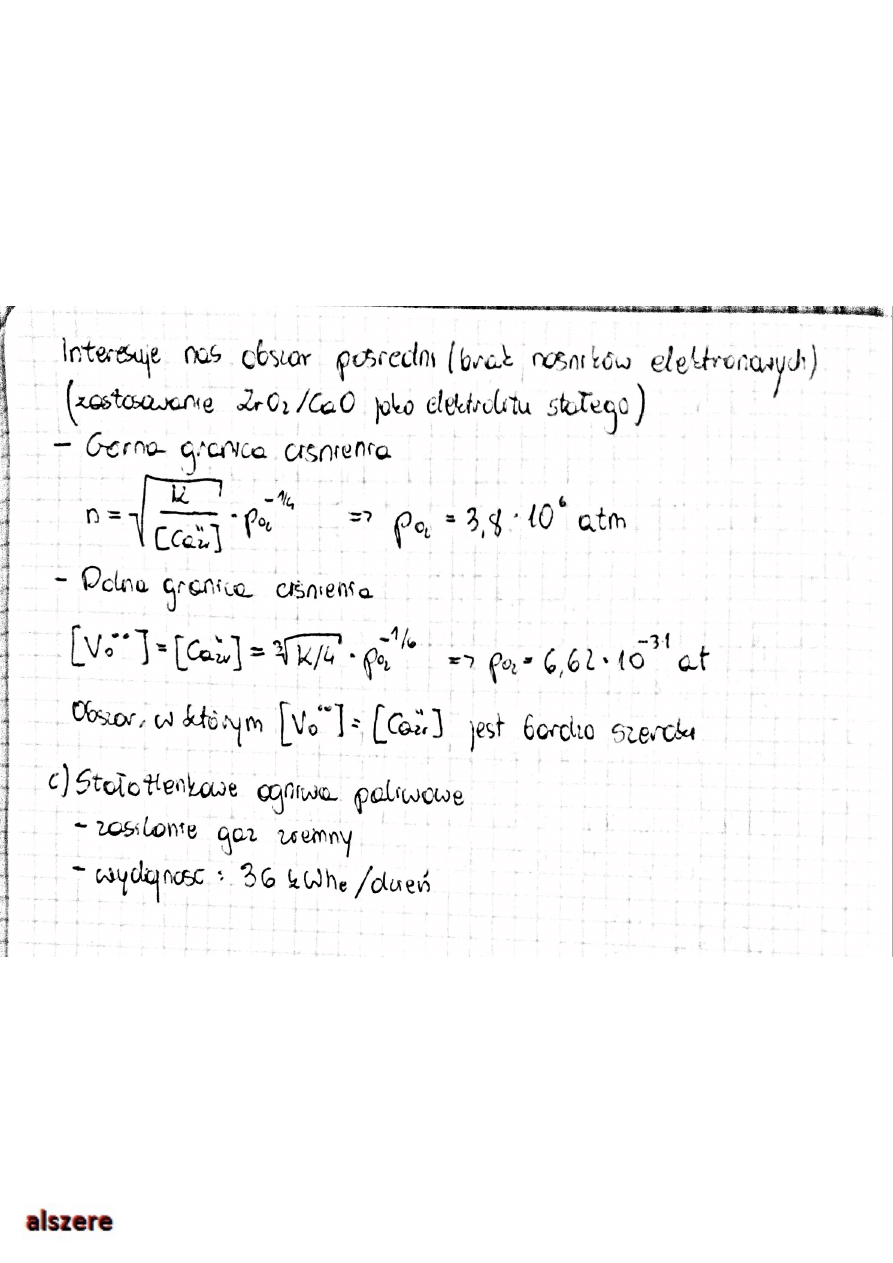 Interesuje nas obszar pośredni (brak nośników elektronowych)
(zastosowanie ZrO₂/CaO jako elektrolitu stałego)
- Górna granica ciśnienia
n = √(K/[Ca_Zr'']) · p_O₂^(-1/4) => p_O₂ = 3,8 · 10⁶ atm
- Dolna granica ciśnienia
[V_O^••] = [Ca_Zr''] = ∛(K/4) · p_O₂^(-1/6) => p_O₂ = 6,62 · 10⁻³¹ at
Obszar, w którym [V_O^••] = [Ca_Zr''] jest bardzo szeroki
c) Stałotlenkowe ogniwa paliwowe
- zasilanie gaz ziemny
- wydajność: 36 kWhe/dzień
alszere